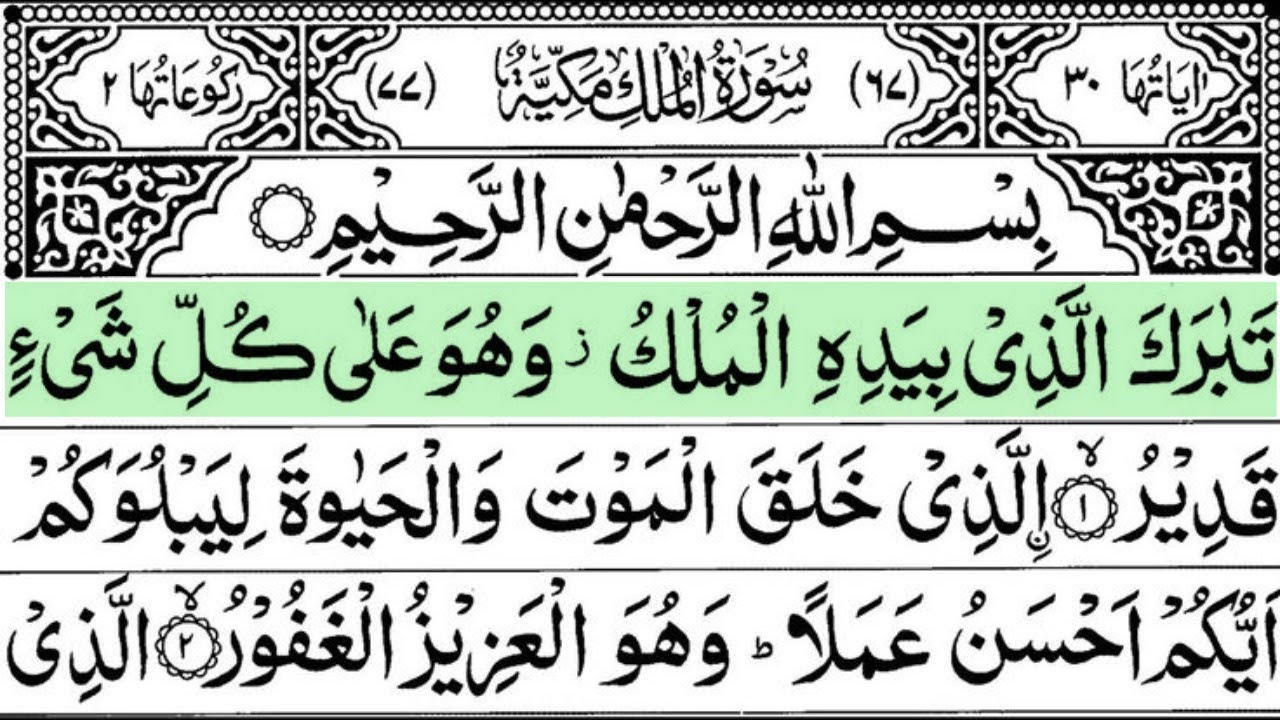 اٰيَاتُهَا ٣٠ (٦٧) سُوْرَةُ الْمُلْكِ مَكِّيَّةٌ (٧٧) رُكُوْعَاتُهَا ٢
بِسْمِ اللهِ الرَّحْمٰنِ الرَّحِيْمِ
تَبٰرَكَ الَّذِىْ بِيَدِهِ الْمُلْكُ ز وَهُوَ عَلٰى كُلِّ شَىْءٍ
قَدِيْرُ ۙ ١ ۨالَّذِىْ خَلَقَ الْمَوْتَ وَالْحَيٰوةَ لِيَبْلُوَكُمْ
اَيُّكُمْ اَحْسَنُ عَمَلًا ؕ وَهُوَ الْعَزِيْزُ الْغَفُوْرُ ۙ ٢ الَّذِىْ